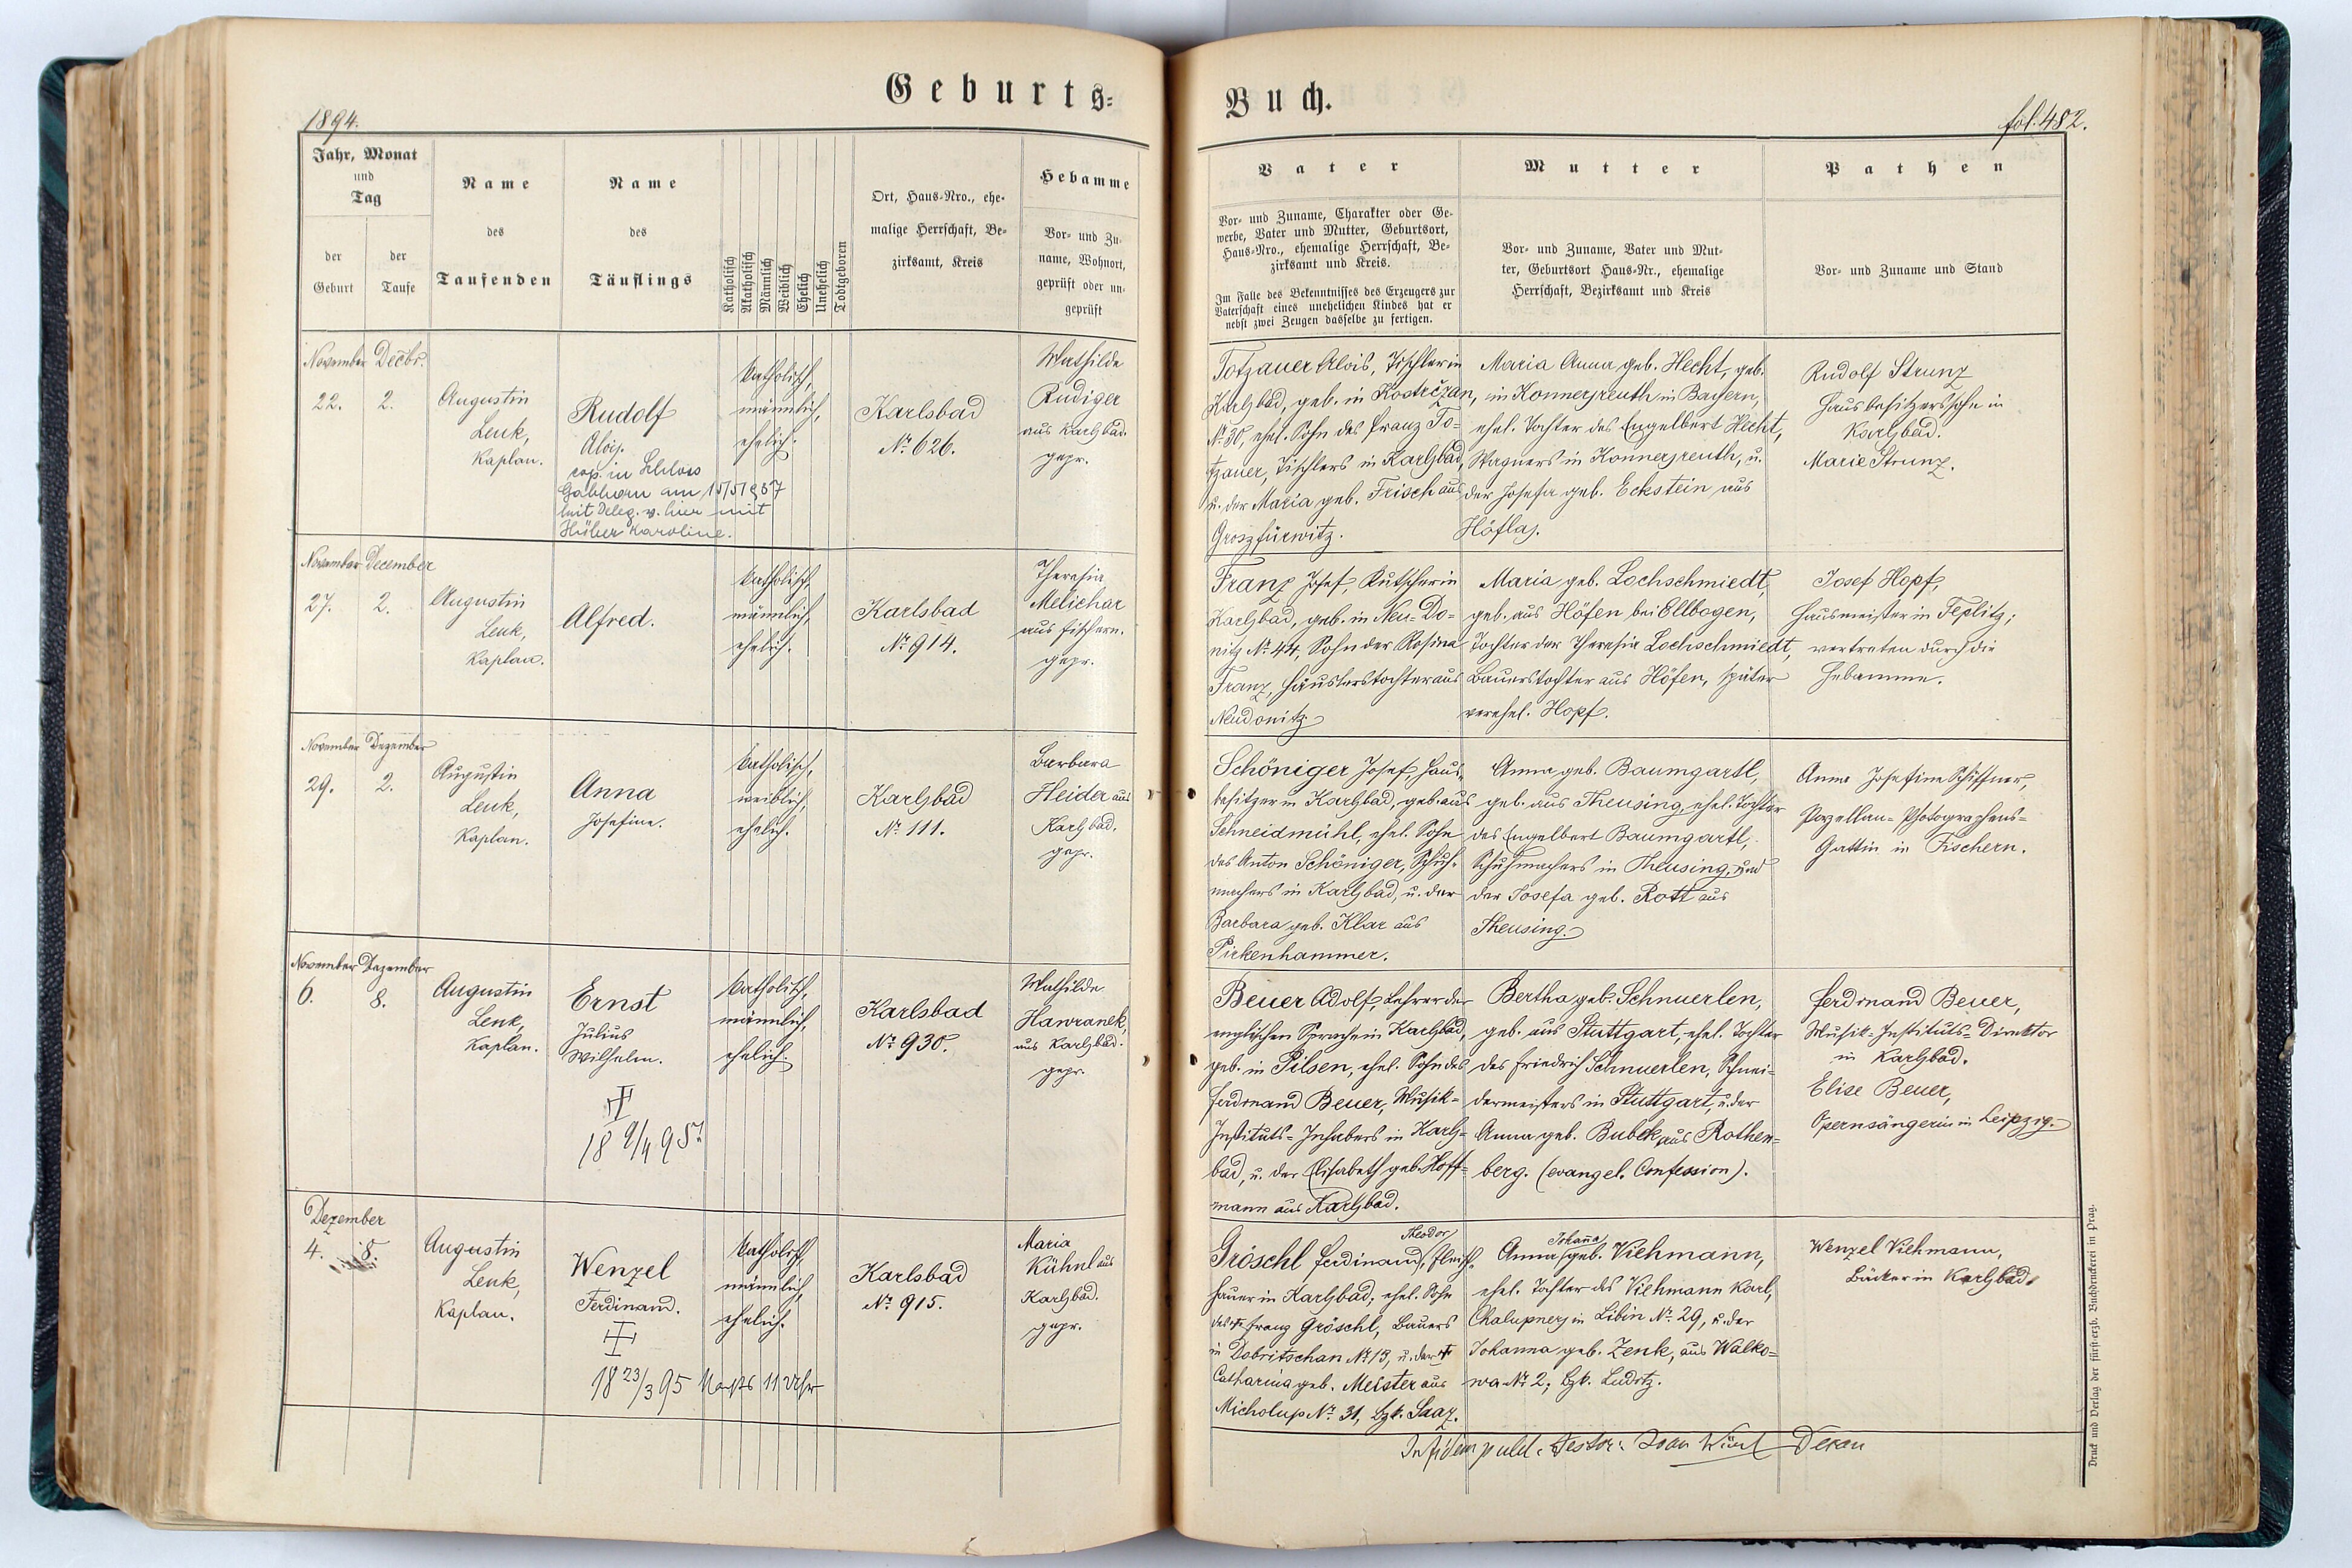 Geburts=
1894.
Jahr, Monat
und
Tag
der
Geburt
der
Taufe
Name
des
Taufenden
Name
des
Täuflings
Katholisch
Akatholisch
Männlich
Weiblich
Ehelich
Unehelich
Todtgeboren
Ort, Haus-Nro., ehe-
malige Herrschaft, Be-
zirksamt, Kreis
Hebamme
Vor- und Zu-
name, Wohnort,
geprüft oder un-
geprüft
November Decbr.
22. 2.
Augustin
Lenk,
Kaplan.
Rudolf
Alois.
cop. in Schloss
Gabhorn am 15/5/937
mit Deleg. v. hier mit
Karoline.
katholisch,
männlich,
ehelich.
Karlsbad
Nr. 626.
Mathilde
Rudiger
aus Karlsbad.
gepr.
November December
27. 2.
Augustin
Lenk,
Kaplan.
Alfred.
katholisch,
männlich,
ehelich.
Karlsbad
Nr. 914.
Theresia
Melichar
aus Fischern.
gepr.
November Dezember
29. 2.
Augustin
Lenk,
Kaplan.
Anna
Josefine.
katholisch,
weiblich,
ehelich.
Karlsbad
Nr. 111.
Barbara
Heider aus
Karlsbad.
gepr.
November Dezember
6. 8.
Augustin
Lenk,
Kaplan.
Ernst
Julius
Wilhelm.
18 9/4 95
katholisch,
männlich,
ehelich.
Karlsbad
Nr. 930.
Mathilde
Hawranek,
aus Karlsbad.
gepr.
Dezember
4. 8.
Augustin
Lenk,
Kaplan.
Wenzel
Ferdinand.
18 23/3 95 Nachts 11 Uhr
katholisch,
männlich,
ehelich.
Karlsbad
Nr. 915.
Maria
Kühnl aus
Karlsbad.
gepr.
Buch.
fol. 482.
Vater
Vor- und Zuname, Charakter oder Ge-
werbe, Vater und Mutter, Geburtsort,
Haus-Nro., ehemalige Herrschaft, Be-
zirksamt und Kreis.
Im Falle des Bekenntnisses des Erzeugers zur
Vaterschaft eines unehelichen Kindes hat er
nebst zwei Zeugen dasselbe zu fertigen.
Mutter
Vor- und Zuname, Vater und Mut-
ter, Geburtsort Haus-Nr., ehemalige
Herrschaft, Bezirksamt und Kreis
Pathen
Vor- und Zuname und Stand
Totzauer Alois, Tischler in
Karlsbad, geb. in Kostrčzan,
Nr. 30, ehel. Sohn des Franz To-
tzauer, Tischlers in Karlsbad,
u. der Maria geb. Frisch aus
Groszfürwitz.
Maria Anna geb. Hecht, geb.
in Konnersreuth in Bayern,
ehel. Tochter des Engelbert Hecht,
Wagners in Konnersreuth, u.
der Josefa geb. Eckstein aus
Höflas.
Rudolf Strunz
Hausbesitzerssohn in
Karlsbad.
Marie Strunz.
Franz Josef, Kutscher in
Karlsbad, geb. in Neu-Do-
nitz Nr. 44, Sohn der Rosina
Franz, Häuslerstochter aus
Neudonitz
Maria geb. Lochschmiedt,
geb. aus Höfen bei Ellbogen,
Tochter der Theresia Lochschmiedt,
Bauerstochter aus Höfen, später
verehel. Hopf.
Josef Hopf,
Hausmeister in Teplitz;
vertreten durch die
Hebamme.
Schöniger Josef, Haus-
besitzer in Karlsbad, geb. aus
Schneidmühl, ehel. Sohn
des Anton Schöniger, Schuh-
machers in Karlsbad, u. der
Barbara geb. Klar aus
Pirkenhammer.
Anna geb. Baumgartl,
geb. aus Theusing, ehel. Tochter
des Engelbert Baumgartl,
Schuhmachers in Theusing, und
der Josefa geb. Rott aus
Theusing.
Anna Josefine Schiffner,
Porzellan-Photographens-
Gattin in Fischern.
Beuer Adolf, Lehrer der
englischen Sprache in Karlsbad,
geb. in Pilsen, ehel. Sohn des
Ferdinand Beuer, Musik-
Instituts-Inhabers in Karls-
bad, u. der Elisabeth geb. Hoff-
mann aus Karlsbad.
Bertha geb. Schnuerlen,
geb. aus Stuttgart, ehel. Tochter
des Friedrich Schnuerlen, Schnei-
dermeisters in Stuttgart, u. der
Anna geb. Bubek aus Rothen-
berg. (evangel. Confession).
Ferdinand Beuer,
Musik-Instituts-Direktor
in Karlsbad.
Elise Beuer,
Opernsängerin in Leipzig.
Theodor
Gröschl Ferdinand, Fleisch-
hauer in Karlsbad, ehel. Sohn
des † Franz Gröschl, Bauers
in Dobritschan Nr. 13, u. der †
Catharina geb. Meister aus
Micholup Nr. 31, bzk. Saaz.
Johanna
Anna geb. Viehmann,
ehel. Tochter des Viehmann Karl,
Chalupners in Libin Nr. 29, u. der
Johanna geb. Zenk, aus Walko-
wa Nr. 2, bzk. Luditz.
Wenzel Viehmann,
Bäcker in Karlsbad.
In fidem Dekan
Druck und Verlag der fürst-erzb. Buchdruckerei in Prag.